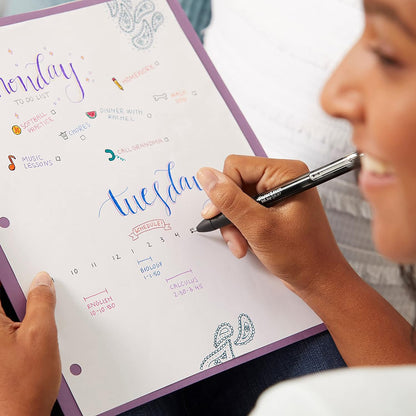 Monday
TO DO LIST
HOMEWORK
SOFTBALL
PRACTICE
DINNER WITH
WALK
CHORES
MUSIC
LESSONS
CALL GRANDMA
Tuesday
SCHEDULE!
10 11 12 1 2 3 4 5
BIOLOGY
1-1:50
ENGLISH
10-10:50
CALCULUS
2:30-3:45